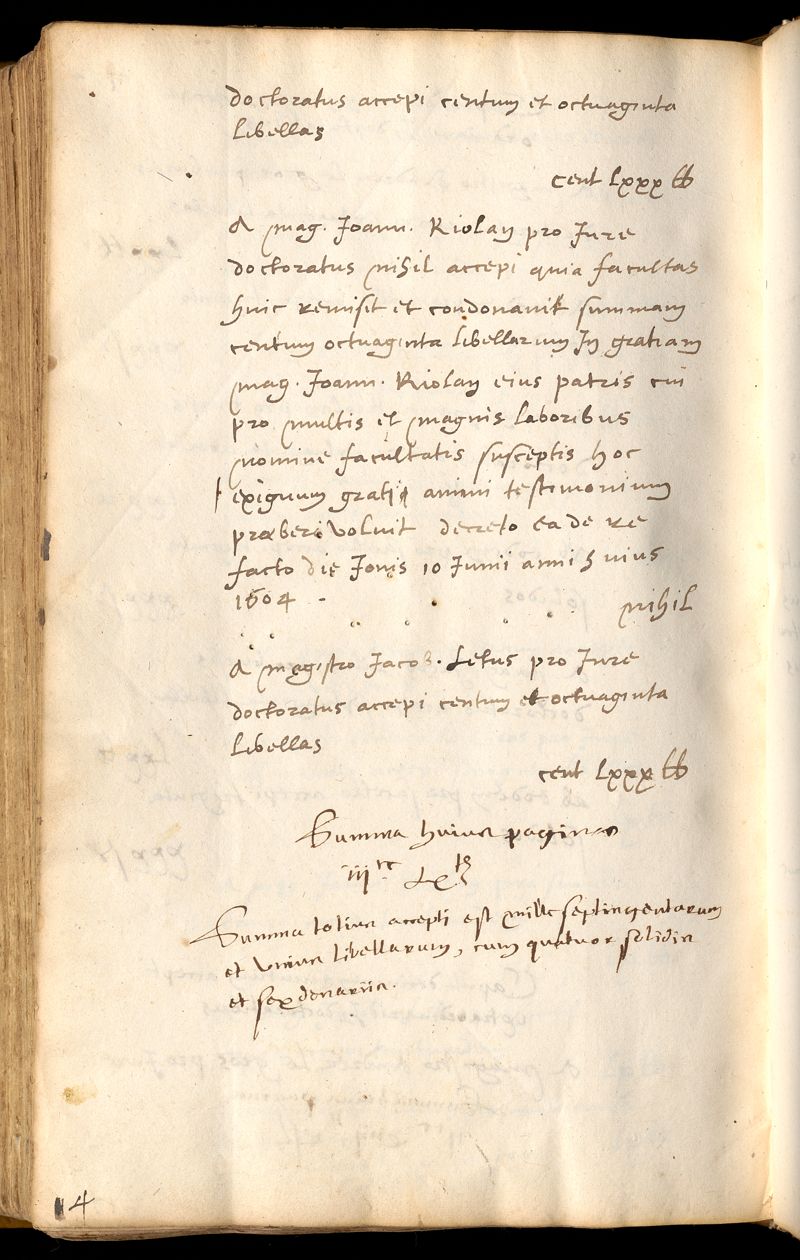 doctoratus accepi centum et octuaginta
libellas
cent lxxx lb
A mag. Joann. Riolan pro Jure
doctoratus nihil accepi quia facultas
huic remisit et condonavit summam
centum octuaginta libellarum In gratiam
mag. Joann. Riolan eius patris cui
pro multis et magnis laboribus
nomine facultatis susceptis hoc
exiguum grati animi testimonium
praeberi voluit decreto ea de re
facto die Jovis 10 Junii anni huius
1604 -
nihil
A magistro Jacob. Letus pro Jure
doctoratus accepi centum et octuaginta
libellas
cent lxxx lb
Summa huius paginae
iii cc lx lb
Summa totius accepti est mille septingentarum
et unius libellarum, cum quatuor solidis
et sex denariis.
14